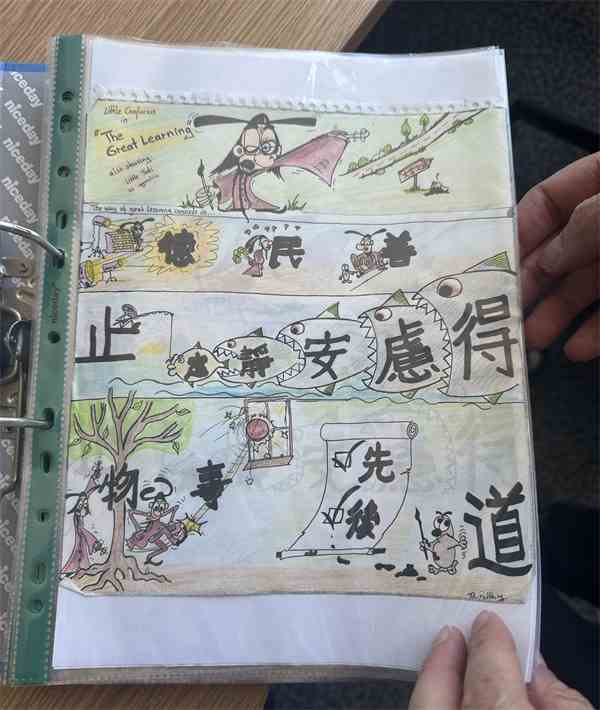 niceday
niceday
niceday
niceday
niceday
Little Confucius
in
"The
Great Learning"
also starring
Little
as
The way of great learning consists in...
德 民 善
止 定 靜 安 慮 得
物 事
先
後
道